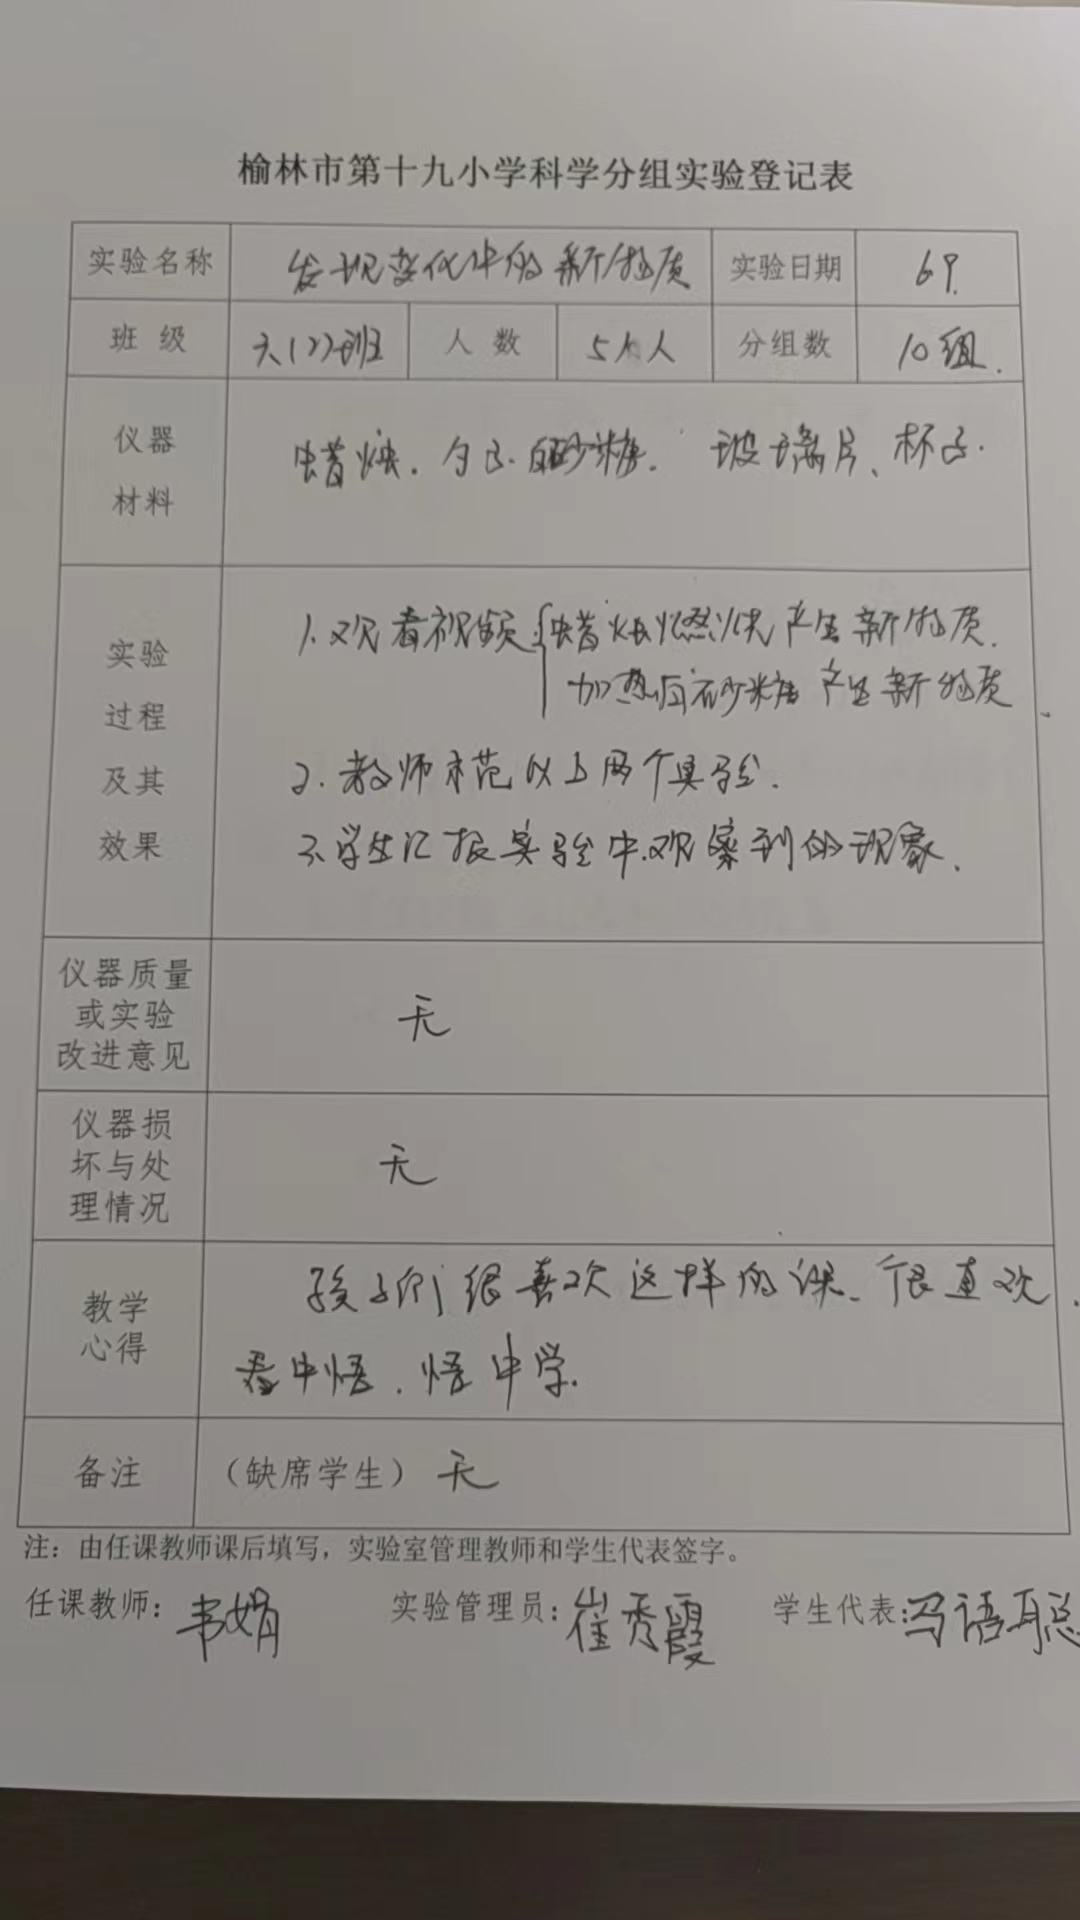 榆林市第十九小学科学分组实验登记表
实验名称 发现变化中的新物质 实验日期 6.9.
班 级 六(2)班 人 数 5人 分组数 10组.
仪器
材料
蜡烛. 勺子. 白砂糖. 玻璃片、杯子.
实验
过程
及其
效果
1. 观看视频 { 蜡烛燃烧产生新物质.
加热白砂糖产生新物质.
2. 教师示范以上两个实验.
3. 学生汇报实验中观察到的现象.
仪器质量
或实验
改进意见
无
仪器损
坏与处
理情况
无
教学
心得
孩子们很喜欢这样的课、很直观.
看中悟. 悟中学.
备注 (缺席学生) 无
注：由任课教师课后填写，实验室管理教师和学生代表签字。
任课教师： 韦娟 实验管理员： 崔秀霞 学生代表： 马语聪